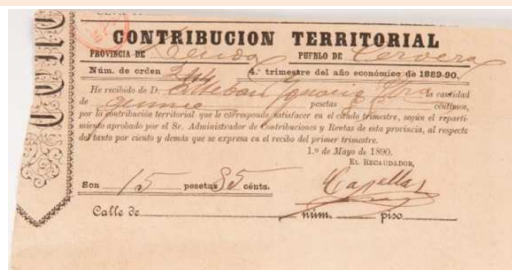 CONTRIBUCION TERRITORIAL
PROVINCIA DE Lerida PUEBLO DE Cervera
Núm. de orden 4.º trimestre del año económico de 1889-90.
He recibido de D. Esteban Ignacio la cantidad
de quince pesetas céntimos,
por la contribución territorial que le corresponde satisfacer en el citado trimestre, según el reparti-
miento aprobado por el Sr. Administrador de Contribuciones y Rentas de esta provincia, al respecto
del tanto por ciento y demás que se expresa en el recibo del primer trimestre.
1.º de Mayo de 1890.
EL RECAUDADOR,
Son 15 pesetas 85 cénts.
Capellas
Calle de núm. piso